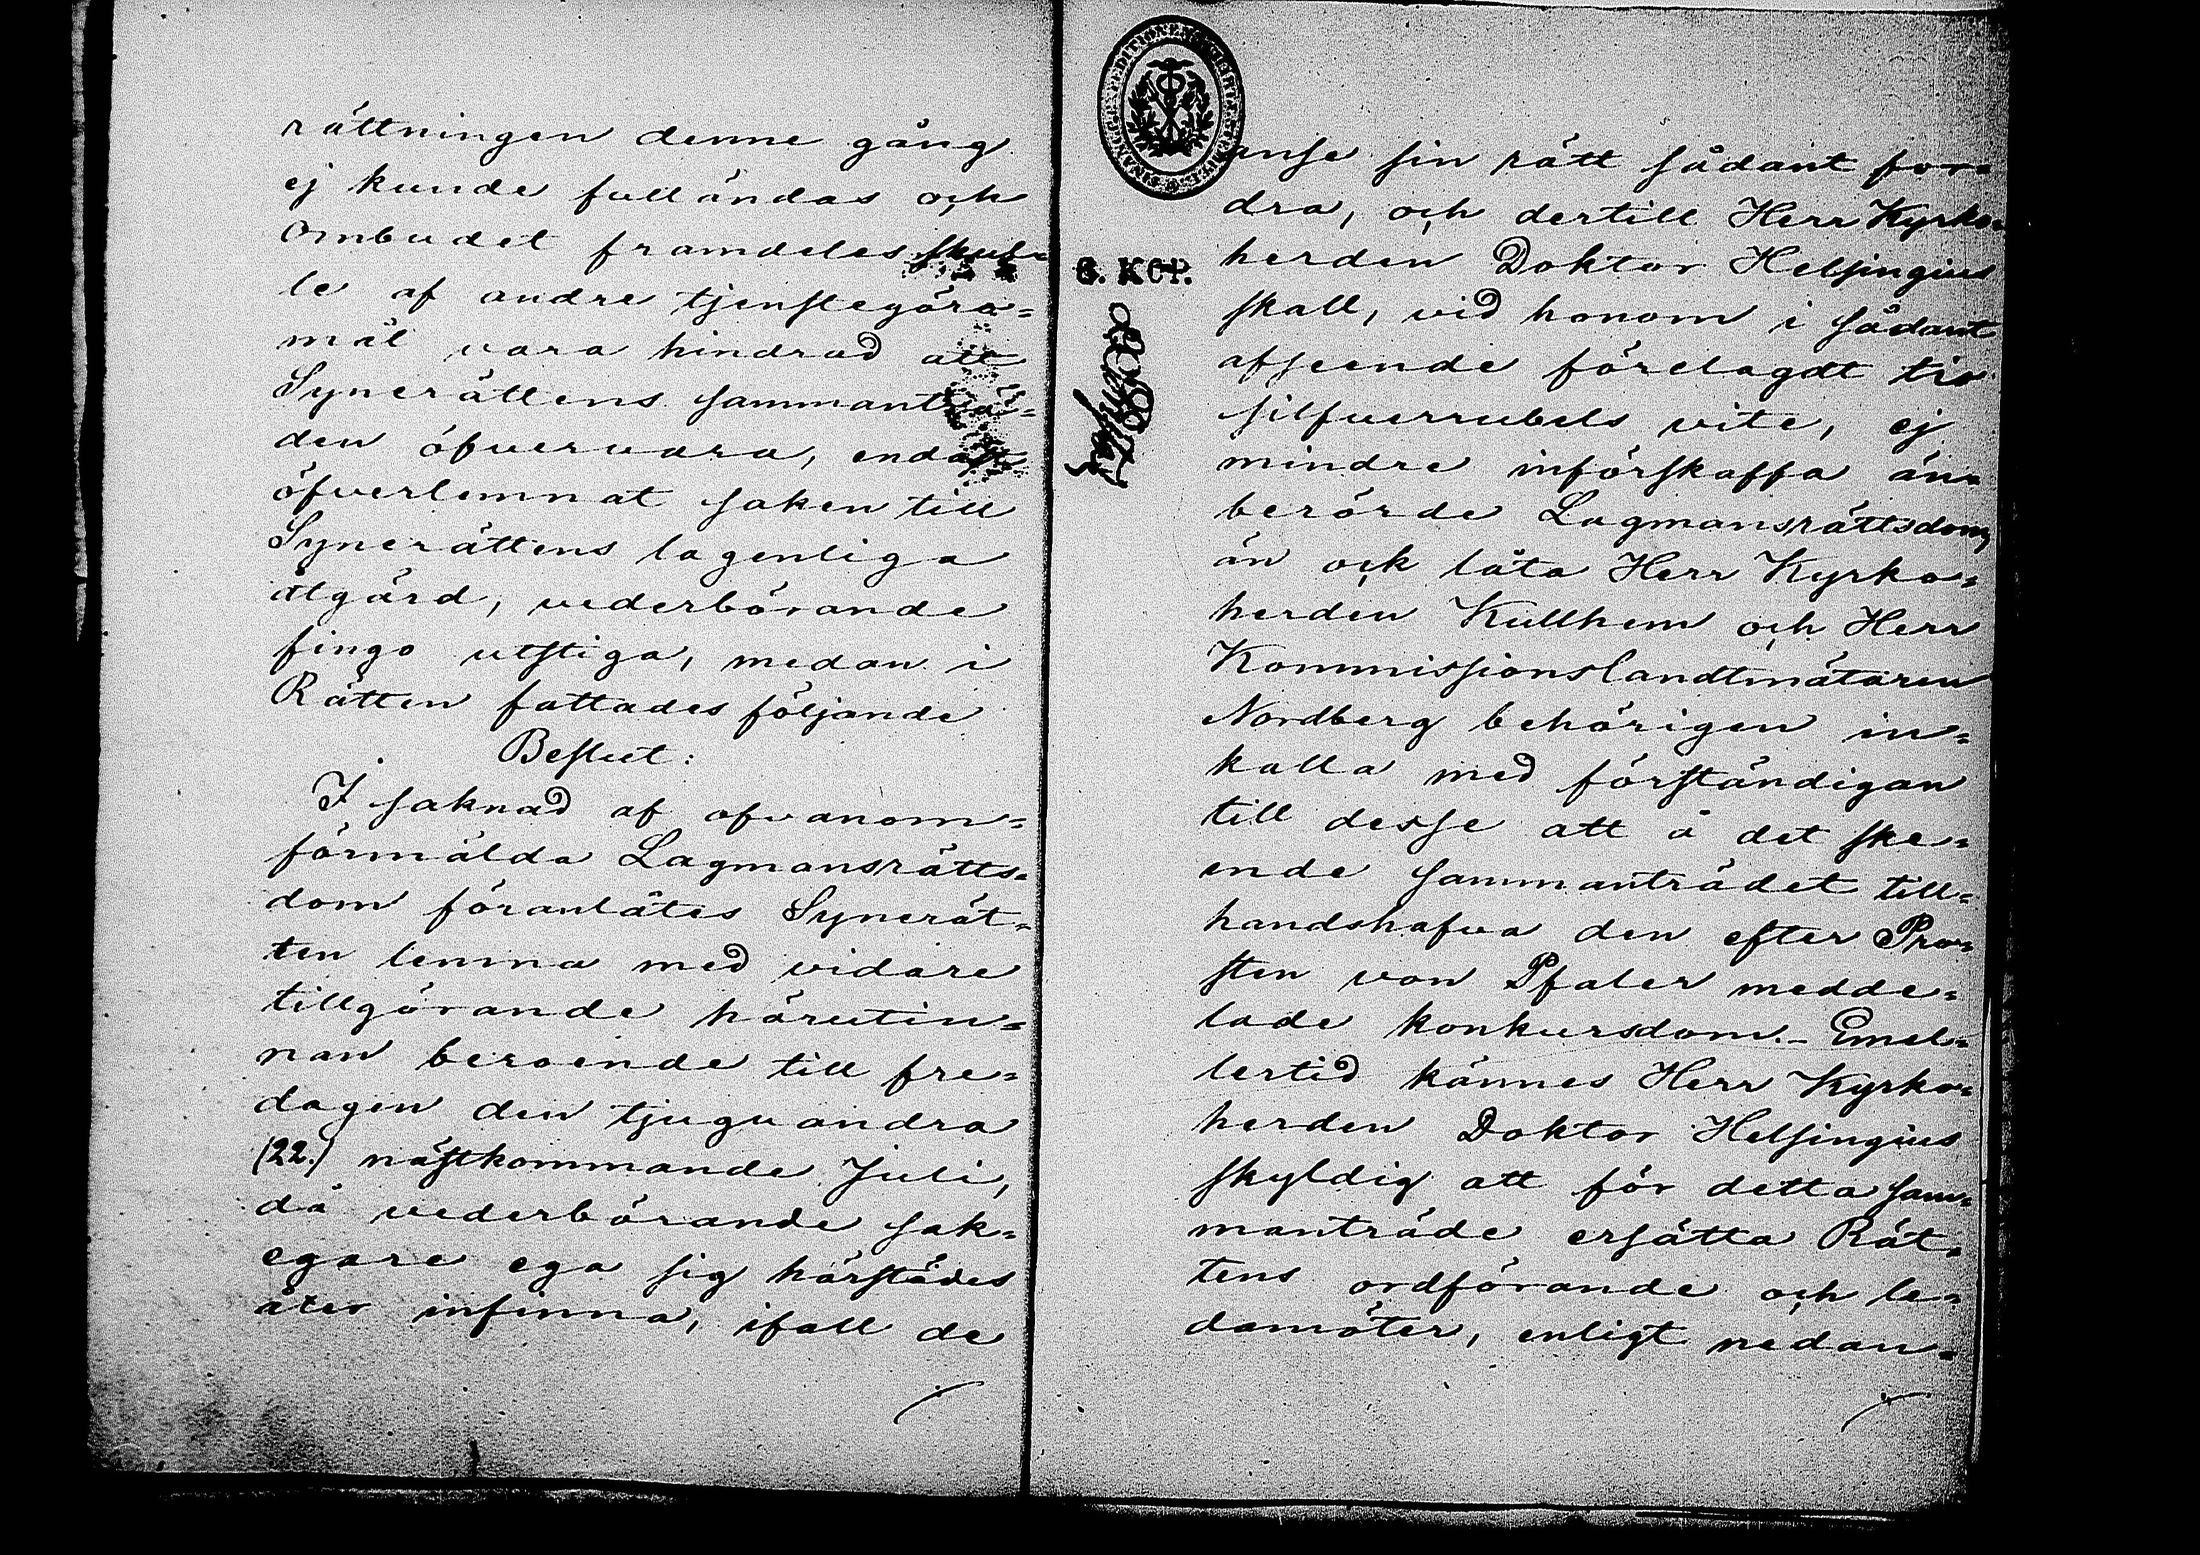 rättningen denne gång
ej kunde fulländas och
Ombudet framdeles skul=
le af andre tjenstegöro=
mål vara hindrad att
Synerättens sammanträ=
den öfvervara, endast
öfverlemnat saken till
Synerättens lagenliga
åtgärd, vederbörande
fingo utstiga, medan i
Rätten fattades följande
Beslut:
I saknad af ofvanom=
förmälda Lagmansrätts=
dom föranlåtes Synerät=
ten lemna med vidare
tillgörande härutin=
nan beroende till fre=
dagen den tjuguandra
(22.) nästkommande Juli,
då vederbörande sak=
egare ega sig härstädes
åter infinna, ifall de
6. KOP.
anse sin rätt sådant for=
dra, och dertill Herr Kyrko=
herden Doktor Helsingius
skall, vid honom i sådant
afseende förelagdt tio
silfverrubels vite, ej
mindre införskaffa än=
berörde Lagmansrättsdom,
än ock låta Herr Kyrko=
herden Kullhem och Herr
Kommissionslandtmätaren
Nordberg behörigen in=
kalla med förständigan
till desse att å det ske=
ende sammanträdet till=
handshafva den efter Pro=
sten von Pfaler medde=
lade konkursdom. – Emel=
lertid kännes Herr Kyrko=
herden Doktor Helsingius
skyldig att för detta sam=
manträde ersätta Rät=
tens ordförande och le=
damöter, enligt nedan=